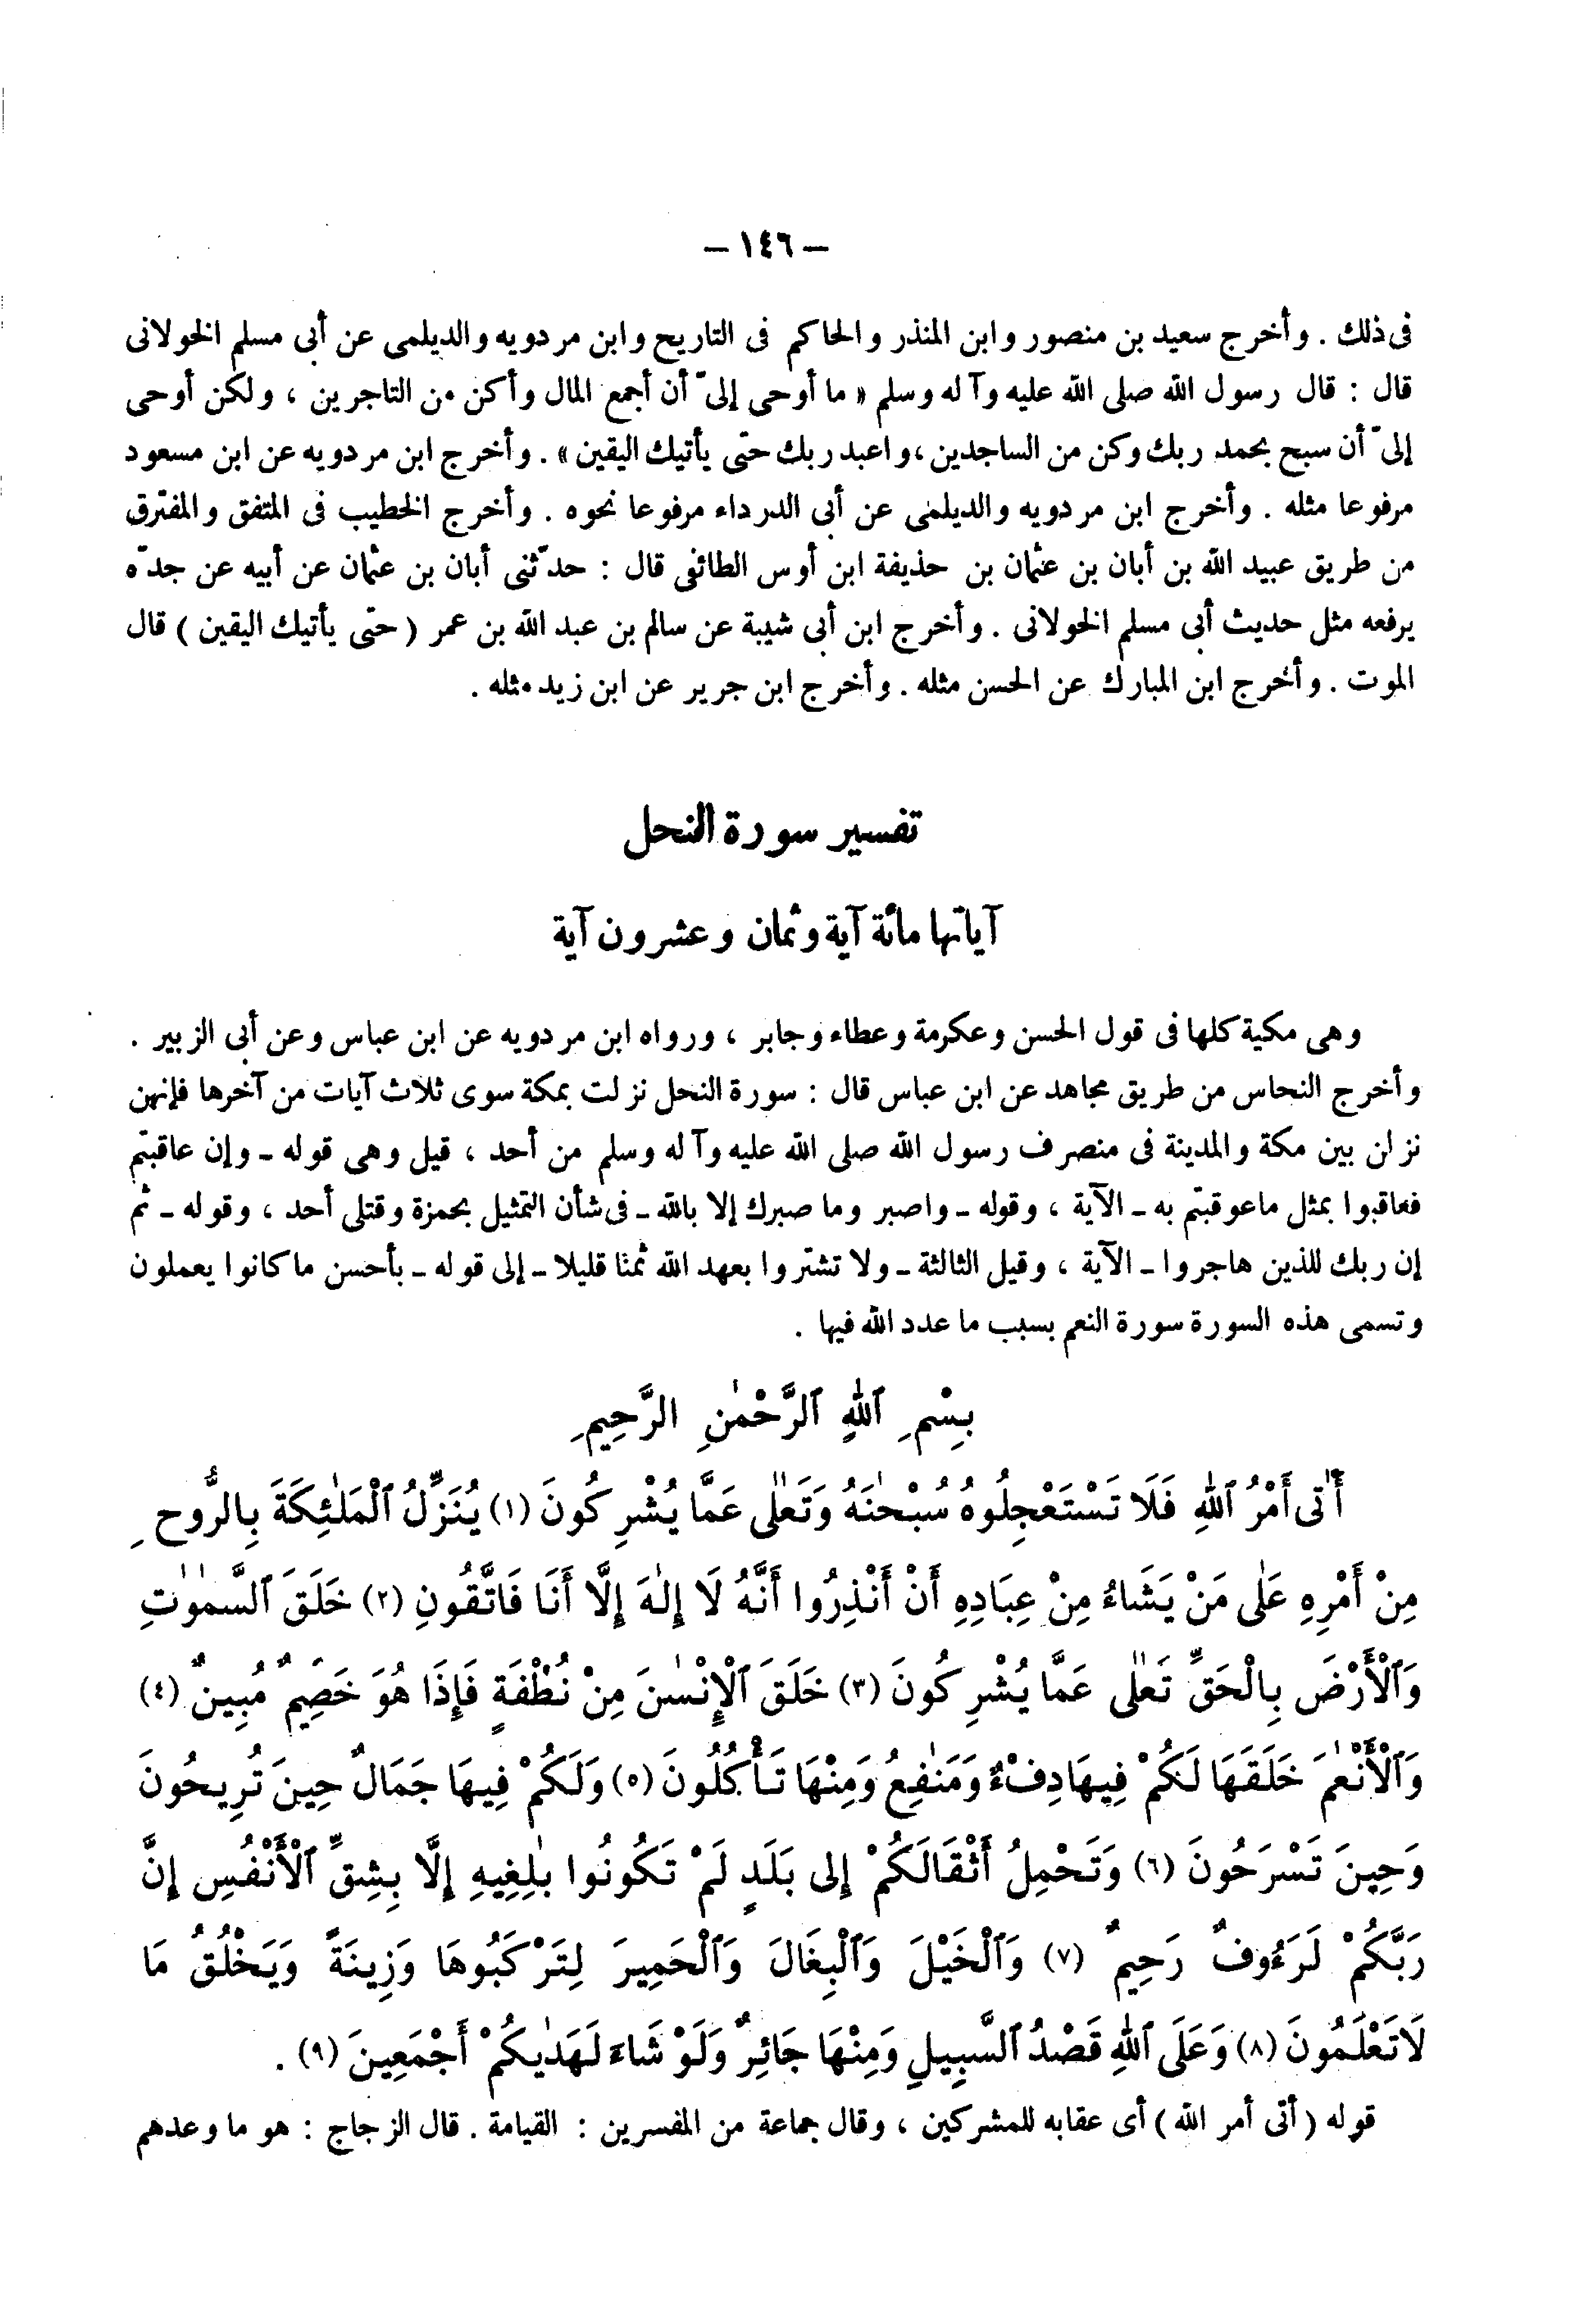 — ١٤٦ —
فى ذلك . وأخرج سعيد بن منصور وابن المنذر والحاكم فى التاريخ وابن مردويه والديلمى عن أبى مسلم الخولانى
قال : قال رسول الله صلى الله عليه وآله وسلم « ما أوحى إلىّ أن أجمع المال وأكن من التاجرين ، ولكن أوحى
إلىّ أن سبح بحمد ربك وكن من الساجدين ، واعبد ربك حتى يأتيك اليقين » . وأخرج ابن مردويه عن ابن مسعود
مرفوعا مثله . وأخرج ابن مردويه والديلمى عن أبى الدرداء مرفوعا نحوه . وأخرج الخطيب فى المتفق والمفترق
من طريق عبيد الله بن أبان بن عثمان بن حذيفة ابن أوس الطائفى قال : حدّثنى أبان بن عثمان عن أبيه عن جدّه
يرفعه مثل حديث أبى مسلم الخولانى . وأخرج ابن أبى شيبة عن سالم بن عبد الله بن عمر ( حتى يأتيك اليقين ) قال
الموت . وأخرج ابن المبارك عن الحسن مثله . وأخرج ابن جرير عن ابن زيد مثله .
تفسير سورة النحل
آياتها مائة آية وثمان وعشرون آية
وهى مكية كلها فى قول الحسن وعكرمة وعطاء وجابر ، ورواه ابن مردويه عن ابن عباس وعن أبى الزبير .
وأخرج النحاس من طريق مجاهد عن ابن عباس قال : سورة النحل نزلت بمكة سوى ثلاث آيات من آخرها فإنهن
نزلن بين مكة والمدينة فى منصرف رسول الله صلى الله عليه وآله وسلم من أحد ، قيل وهى قوله - وإن عاقبتم
فعاقبوا بمثل ماعوقبتم به - الآية ، وقوله - واصبر وما صبرك إلا بالله - فى شأن التمثيل بحمزة وقتلى أحد ، وقوله - ثم
إن ربك للذين هاجروا - الآية ، وقيل الثالثة - ولا تشتروا بعهد الله ثمنا قليلا - إلى قوله - بأحسن ما كانوا يعملون
وتسمى هذه السورة سورة النعم بسبب ما عدد الله فيها .
بِسْمِ ٱللهِ ٱلرَّحْمٰنِ الرَّحِيمِ
أَتٰى أَمْرُ ٱللهِ فَلَا تَسْتَعْجِلُوهُ سُبْحٰنَهُ وَتَعٰلٰى عَمَّا يُشْرِكُونَ (١) يُنَزِّلُ ٱلْمَلٰئِكَةَ بِالرُّوحِ
مِنْ أَمْرِهِ عَلٰى مَنْ يَشَاءُ مِنْ عِبَادِهِ أَنْ أَنْذِرُوا أَنَّهُ لَا إِلٰهَ إِلَّا أَنَا فَاتَّقُونِ (٢) خَلَقَ ٱلسَّمٰوٰتِ
وَٱلْأَرْضَ بِالْحَقِّ تَعٰلٰى عَمَّا يُشْرِكُونَ (٣) خَلَقَ ٱلْإِنْسٰنَ مِنْ نُطْفَةٍ فَإِذَا هُوَ خَصِيمٌ مُبِينٌ (٤)
وَٱلْأَنْعٰمَ خَلَقَهَا لَكُمْ فِيهَا دِفْءٌ وَمَنٰفِعُ وَمِنْهَا تَأْكُلُونَ (٥) وَلَكُمْ فِيهَا جَمَالٌ حِينَ تُرِيحُونَ
وَحِينَ تَسْرَحُونَ (٦) وَتَحْمِلُ أَثْقَالَكُمْ إِلى بَلَدٍ لَمْ تَكُونُوا بٰلِغِيهِ إِلَّا بِشِقِّ ٱلْأَنْفُسِ إِنَّ
رَبَّكُمْ لَرَءُوفٌ رَحِيمٌ (٧) وَٱلْخَيْلَ وَٱلْبِغَالَ وَٱلْحَمِيرَ لِتَرْكَبُوهَا وَزِينَةً وَيَخْلُقُ مَا
لَا تَعْلَمُونَ (٨) وَعَلَى ٱللهِ قَصْدُ ٱلسَّبِيلِ وَمِنْهَا جَائِرٌ وَلَوْ شَاءَ لَهَدٰيكُمْ أَجْمَعِينَ (٩) .
قوله ( أتى أمر الله ) أى عقابه للمشركين ، وقال جماعة من المفسرين : القيامة . قال الزجاج : هو ما وعدهم